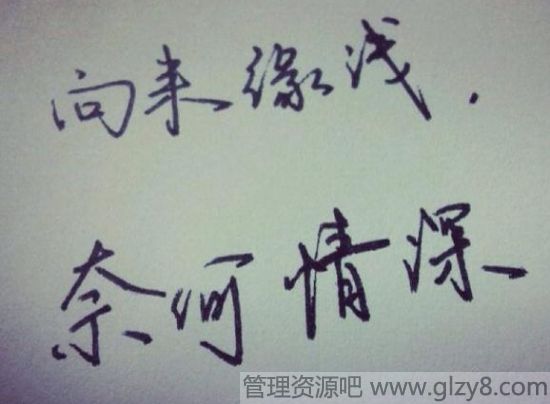 向来缘浅.
奈何情深
管理资源吧 www.glzy8.com